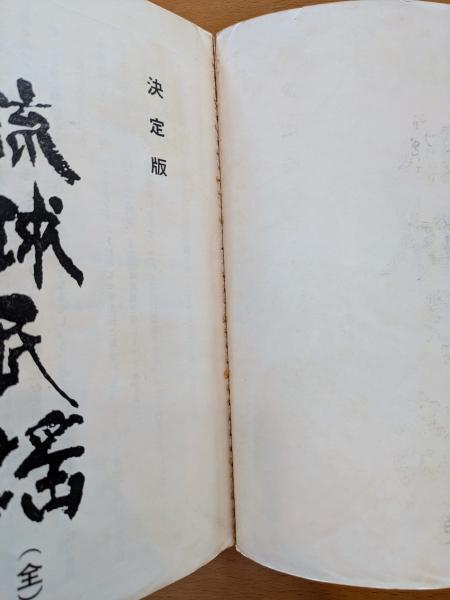 決定版
琉球民謡
(全)